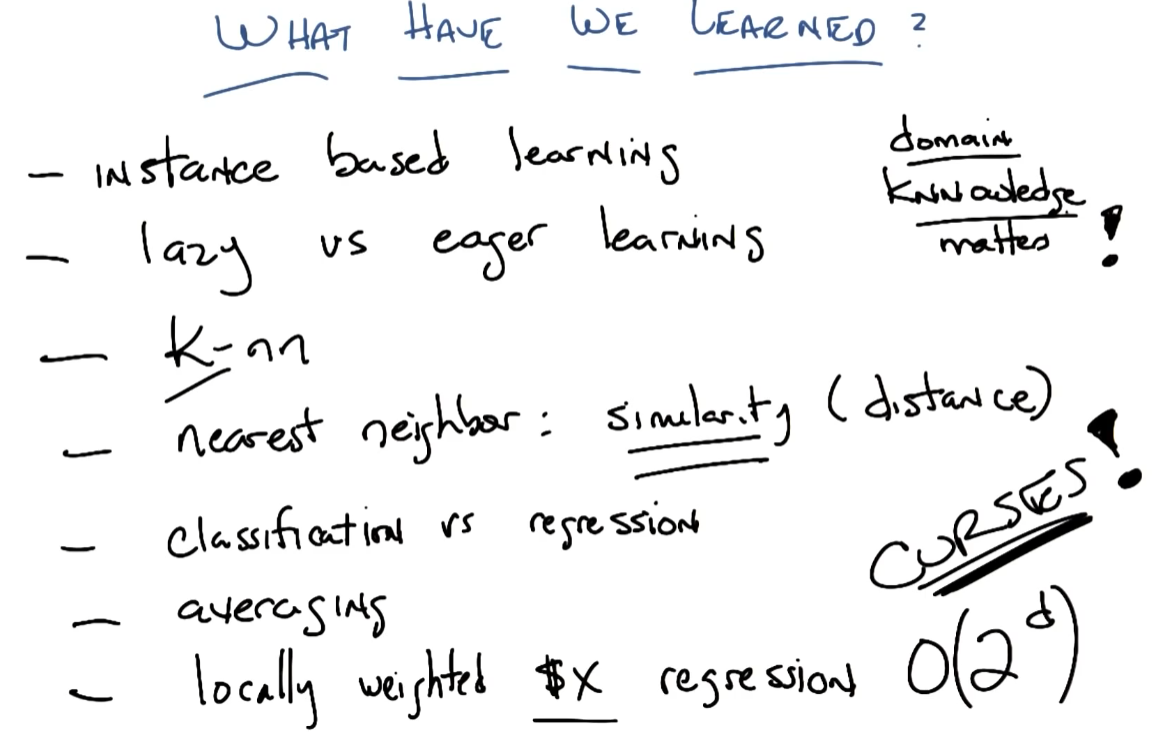 WHAT HAVE WE LEARNED?
- instance based learning
- lazy vs eager learning
- K-nn
- nearest neighbor: similarity (distance)
- classification vs regression
- averaging
- locally weighted $X regression
domain
KNNowledge
matters
!
CURSES!
O(2^d)